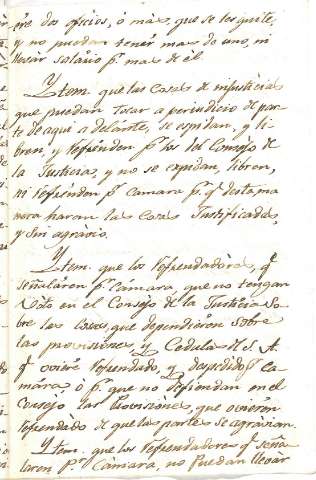 ere dos oficios, ó más, que se les quite,
y no puedan tener mas de uno, ni
llevar salário pr. mas de él
Ytem. que las cosas de injusticias
que puedan tocar a perjuicio de par-
te de aqui adelante, se espidan, y li-
bren, y refrenden pr. los del Consejo de
la Justicia, y no se expidan, libren,
ni refrenden pr. camara pr. q. desta ma
nera haran las cosas Justificadas,
y sin agravio.
Ytem. que los refrendadores, q.
señaláren pr. Cámara, que no tengan
Voto en el Consejo de la Justicia so-
bre las cosas, que dependieren sobre
las provisiones, y Cedulas de S. A.
q. oviere refrendado, y despedido pr. ca-
mara ó pr. que no defiendan en el
Consejo las Provisiones, que ovieren
refrendado de que las partes se agravian.
Ytem. que los Refrendadores q. seña
laren Pr. Cámara, no Puedan llevar